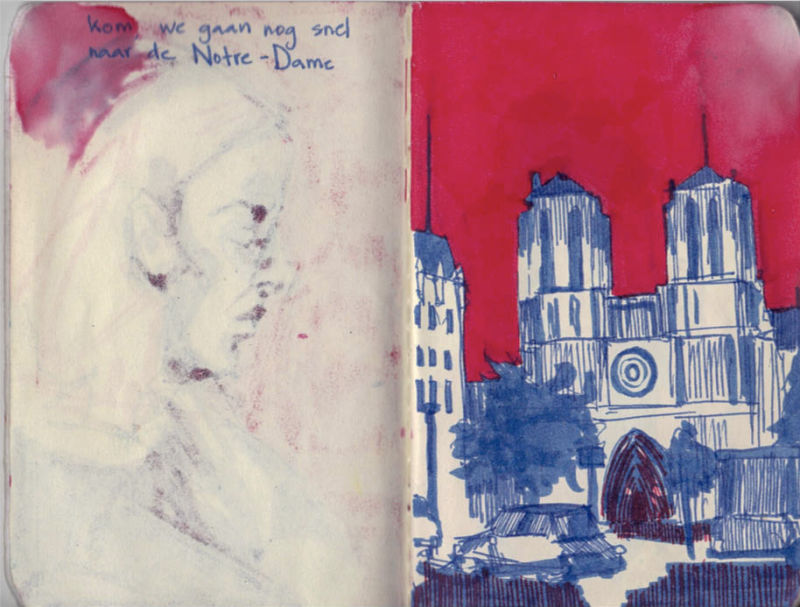 kom, we gaan nog snel
naar de Notre-Dame